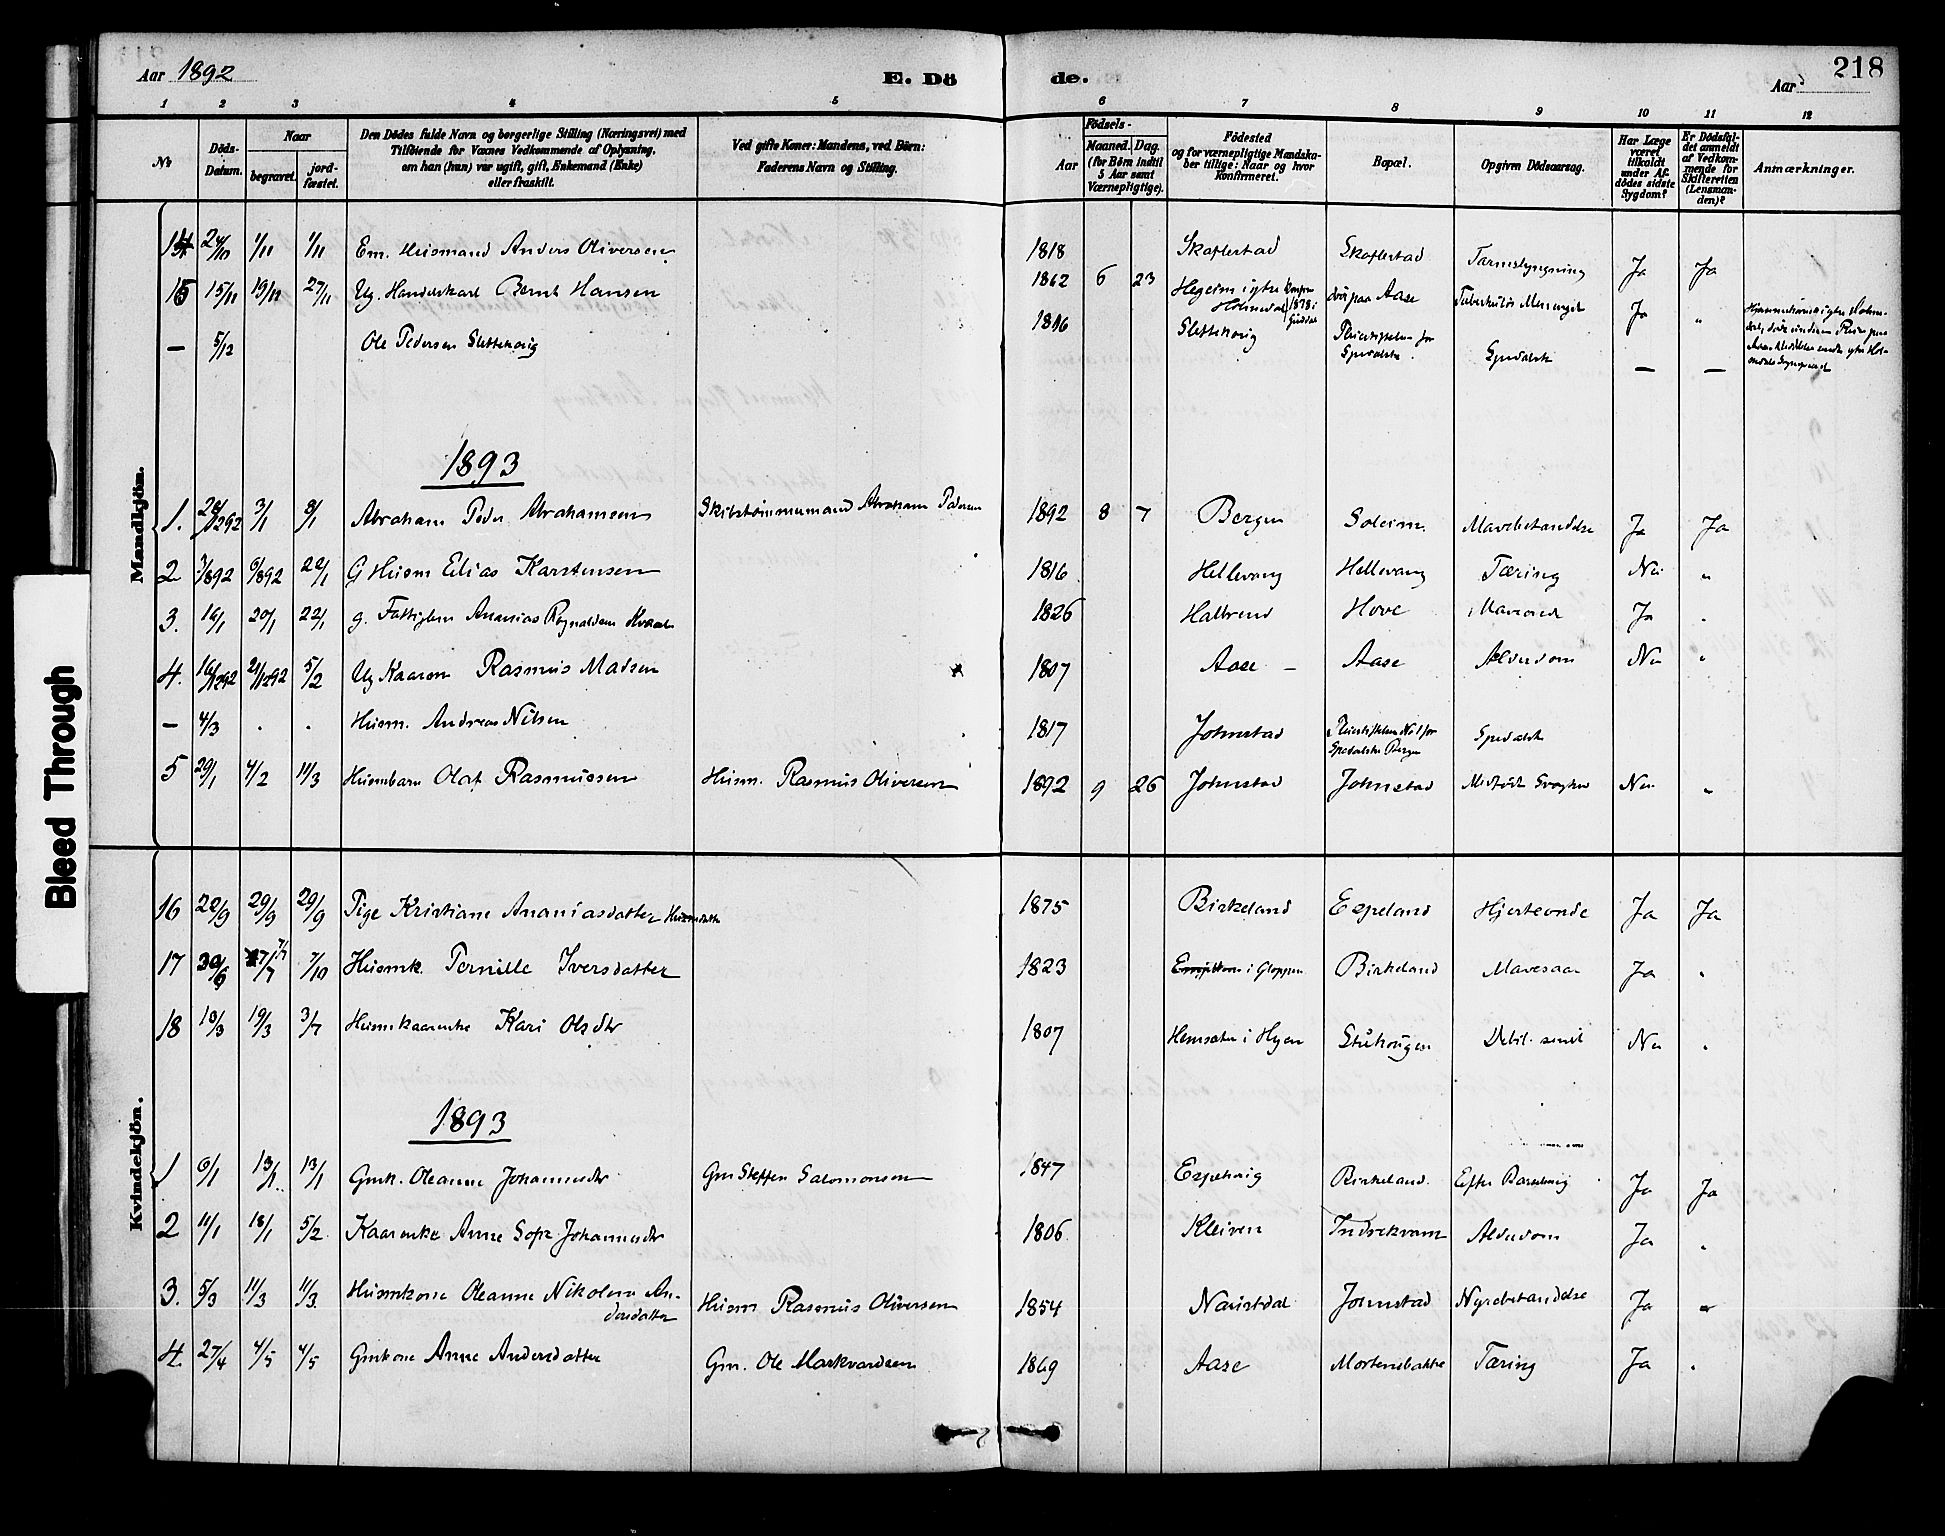 Aar 1892
E. Dö
de.
Aar
218
1 2 3 4 5 6 7 8 9 10 11 12
No
Döds-
Datum.
Naar
begravet.
jord-
fæstet.
Den Dödes fulde Navn og borgerlige Stilling (Næringsvei) med
Tilföiende for Voxnes Vedkommende af Oplysning,
om han (hun) var ugift, gift, Enkemand (Enke)
eller fraskilt.
Ved gifte Koner: Mandens, ved Börn:
Faderens Navn og Stilling.
Födsels-
Aar
Maaned. Dag.
(for Börn indtil
5 Aar samt
Værnepligtige).
Födested
og for værnepligtige Mandska-
ber tillige: Naar og hvor
Konfirmeret.
Bopæl.
Opgiven Dödsaarsag.
Har Læge
været
tilkaldt
under Af-
dödes sidste
Sygdom?
Er Dödsfal-
det anmeldt
af Vedkom-
mende for
Skifteretten
(Lensman-
den)?
Anmærkninger.
Mandkjön.
14 24/10 1/11 1/11 Em. Huismand Anders Oliversen 1818 Skaflestad Skaflestad Tarmslyngning Ja Ja
15 15/11 19/11 27/11 Ug. Handelskarl Bernt Hansen 1862 6 23 Hegeim i ytre Holmedal 1878 paa Aase Tuberkuløs Ja "
— 5/12 Ole Pedersen Slettehoug 1816 Slettehoug for Spedalske Spedalsk — —
1893
1. 28/12 92 3/1 8/1 Abraham Peder Abrahamsen Skibstømmermand Abraham Pedersen 1892 8 7 Bergen Soleim Mavebetændelse Ja Ja
2 3/892 6/892 22/1 G Husm Elias Karstensen 1816 Hellevang Hellevang Tæring Nei "
3. 16/1 20/1 22/1 g. Fattiglem Ananias Rognaldsen Kvaal 1826 Halbrend Hove Maveonde Ja "
4. 16/1292 21/1292 5/2 Ug Kaarm Rasmus Madsen 1807 Aase — Aase Alderdom Nei "
— 4/3 . . Husm. Andreas Nilsen 1817 Johnstad Pleiestiftelsen No 1 for Spedalske Bergen Spedalsk
5 29/1 4/2 11/3 Husmbarn Olaf Rasmussen Husm. Rasmus Oliversen 1892 9 26 Johnstad Johnstad Medfødt Svaghed Nei "
Kvindekjön.
16 22/9 29/9 29/9 Pige Kristiane Ananiasdatter 1875 Birkeland Espeland Hjerteonde Ja Ja
17 30/6 7/7 7/10 Husmk. Pernille Iversdatter 1823 i Gloppen Birkeland Mavesaar Ja "
18 10/3 19/3 3/7 Husmkaarenke Kari Olsdtr 1807 Hemsæter i Hyen Stuhougen Debil. senil Nei "
1893
1 6/1 13/1 13/1 Gmk. Oleanne Johannesdtr Gm Steffen Salomonsen 1847 Espehoug Birkeland Efter Barselseng Ja Ja
2 11/1 18/1 5/2 Kaarenke Anne Sofie Johannesdtr 1806 Kleiven Indrekvam Alderdom Ja "
3. 5/3 11/3 11/3 Husmkone Oleanne Nikoline An-
dersdatter Husm Rasmus Oliversen 1854 Naustdal Johnstad Nyrebetændelse Ja "
4. 27/4 4/5 4/5 Gmkone Anne Andersdatter Gm. Ole Markvardsen 1869 Aase Mortensbakke Tæring Ja "
Bleed Through